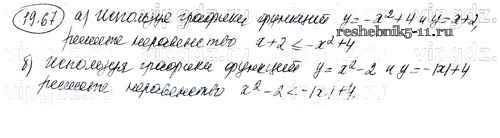 19.67 а) Используя графики функций y=-x²+4 и y=x+2,
решите неравенство x+2≤-x²+4
www.reshak.ru
б) Используя графики функций y=x²-2 и y=-|x|+4
решите неравенство x²-2<-|x|+4.